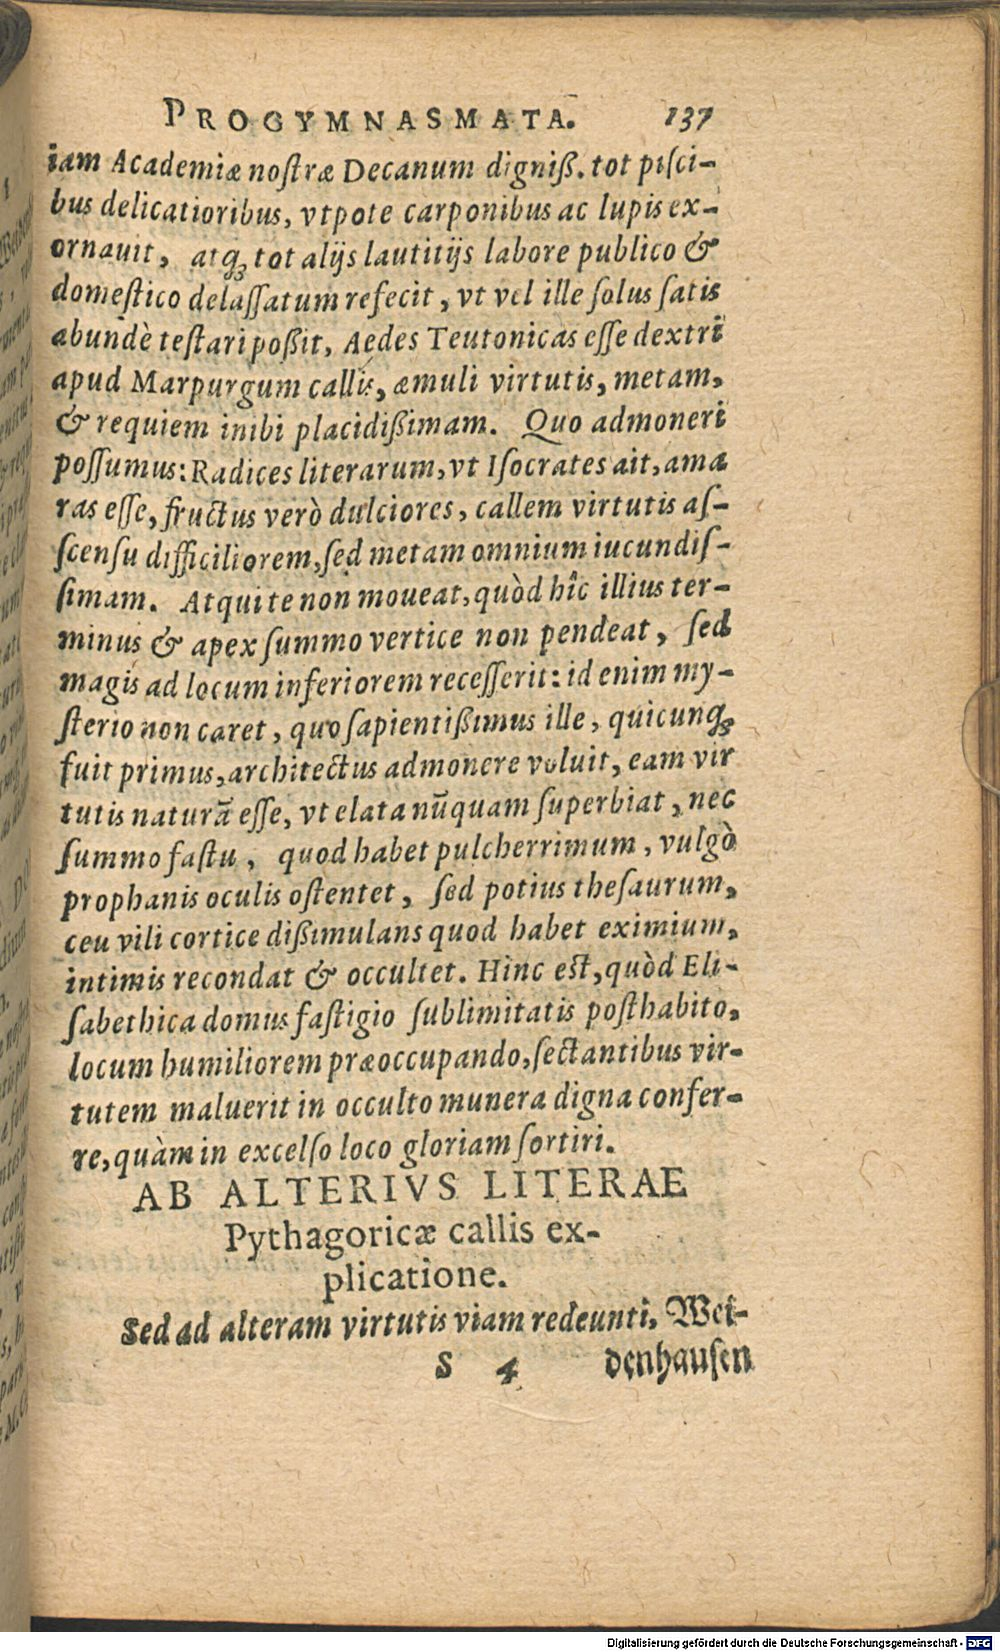 PROGYMNASMATA. 137
iam Academiæ noſtræ Decanum digniß. tot piſci-
bus delicatioribus, vtpote carponibus ac lupis ex-
ornauit, atq́ꝫ tot alijs lautitijs labore publico &
domeſtico delaſſatum refecit, vt vel ille ſolus ſatis
abundè teſtari poßit, Aedes Teutonicas eſſe dextri
apud Marpurgum callis, æmuli virtutis, metam,
& requiem inibi placidißimam. Quo admoneri
poſſumus: Radices literarum, vt Iſocrates ait, ama
ras eſſe, fructus verò dulciores, callem virtutis aſ-
ſcenſu difficiliorem, ſed metam omnium iucundiſ-
ſimam. Atqui te non moueat, quòd hîc illius ter-
minus & apex ſummo vertice non pendeat, ſed
magis ad locum inferiorem receſſerit: id enim my-
ſterio non caret, quo ſapientißimus ille, quicunqꝫ
fuit primus, architectus admonere voluit, eam vir
tutis naturã eſſe, vt elata nũquam ſuperbiat, nec
ſummo faſtu, quod habet pulcherrimum, vulgò
prophanis oculis oſtentet, ſed potius theſaurum,
ceu vili cortice dißimulans quod habet eximium,
intimis recondat & occultet. Hinc est, quòd Eli-
ſabethica domus faſtigio ſublimitatis poſthabito,
locum humiliorem præoccupando, ſectantibus vir-
tutem maluerit in occulto munera digna confer-
re, quàm in excelſo loco gloriam ſortiri.
AB ALTERIVS LITERAE
Pythagoricæ callis ex-
plicatione.
Sed ad alteram virtutis viam redeunti, Wei-
S 4 denhauſen
Digitalisierung gefördert durch die Deutsche Forschungsgemeinschaft - DFG